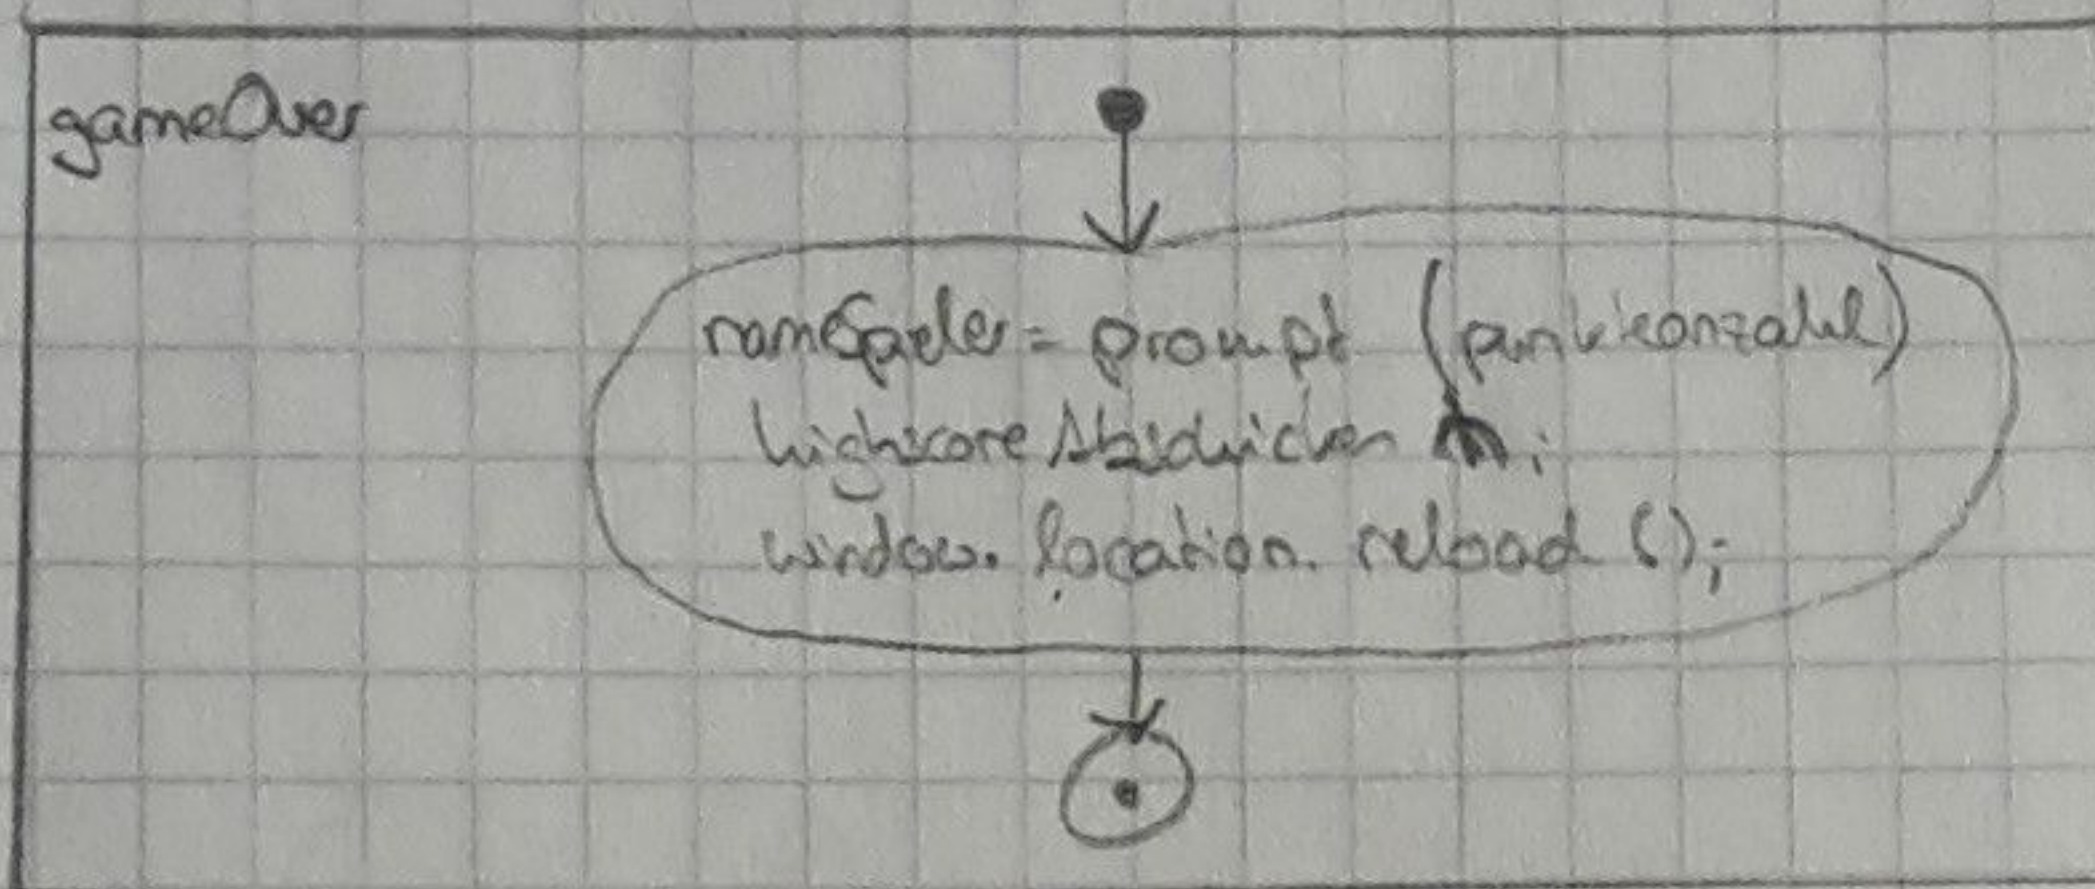 gameOver
nameSpieler = prompt (punkteanzahl)
highscoreAbschicken ();
window.location.reload ();